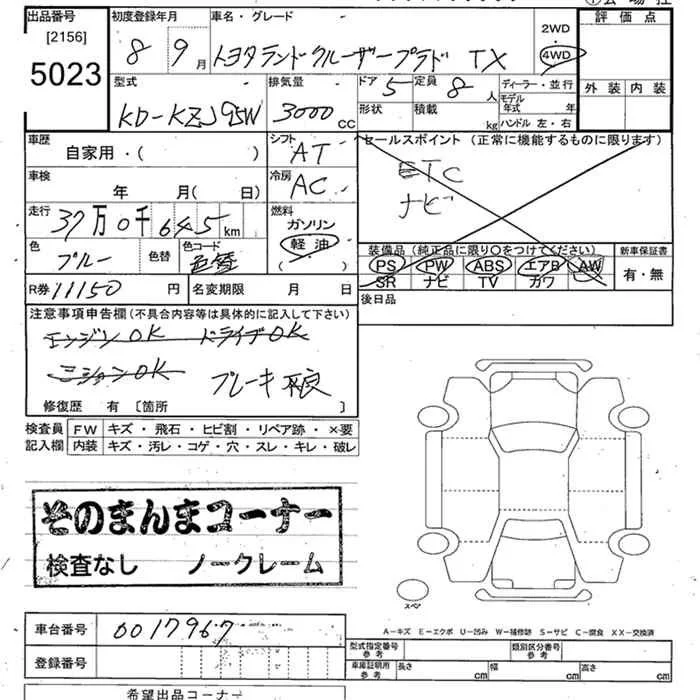 出品番号 初度登録年月 車名・グレード 2WD 評価点
[2156] 8 9月 トヨタランドクルーザープラド TX ・
5023 4WD
型式 排気量 ドア 5 定員 8人 ディーラー・並行 外装 内装
KD-KZJ95W 3000cc 形状 積載 kg モデル年式 年
ハンドル 左・右
車歴 シフト AT セールスポイント (正常に機能するものに限ります)
自家用・( )
車検 冷房 AC ETC
年 月( 日) ナビ
走行 37万0千645km 燃料 ガソリン
軽油
( )
色 ブルー 色替 色コード 色替 装備品(純正品に限り○をつけてください) 新車保証書
PS PW ABS エアB AW 有・無
SR ナビ TV カワ
R券 11150円 名変期限 月 日 後日品
注意事項申告欄(不具合内容等は具体的に記入して下さい)
エンジンOK ドライブOK
ミションOK ブレーキ不良
修復歴 有 [箇所 ]
検査員 FW キズ・飛石・ヒビ割・リペア跡・×要
記入欄 内装 キズ・汚レ・コゲ・穴・スレ・キレ・破レ
そのまんまコーナー
検査なし ノークレーム
スペア
車台番号 0017967
A-キズ E-エクボ U-凹み W-補修跡 S-サビ C-腐食 XX-交換済
登録番号 型式指定番号 参考 類別区分番号 参考
車庫証明用 参考 長さ cm 幅 cm 高さ cm
希望出品コーナー